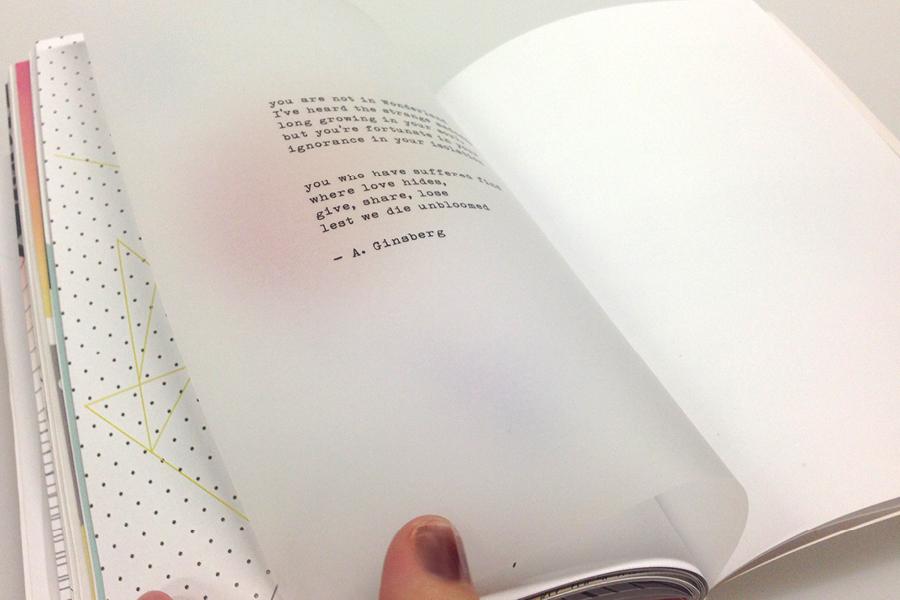 you are not in wonderland
I've heard the strange
long growing in your
but you're fortunate in your
ignorance in your isolation
you who have suffered find
where love hides,
give, share, lose
lest we die unbloomed
— A. Ginsberg